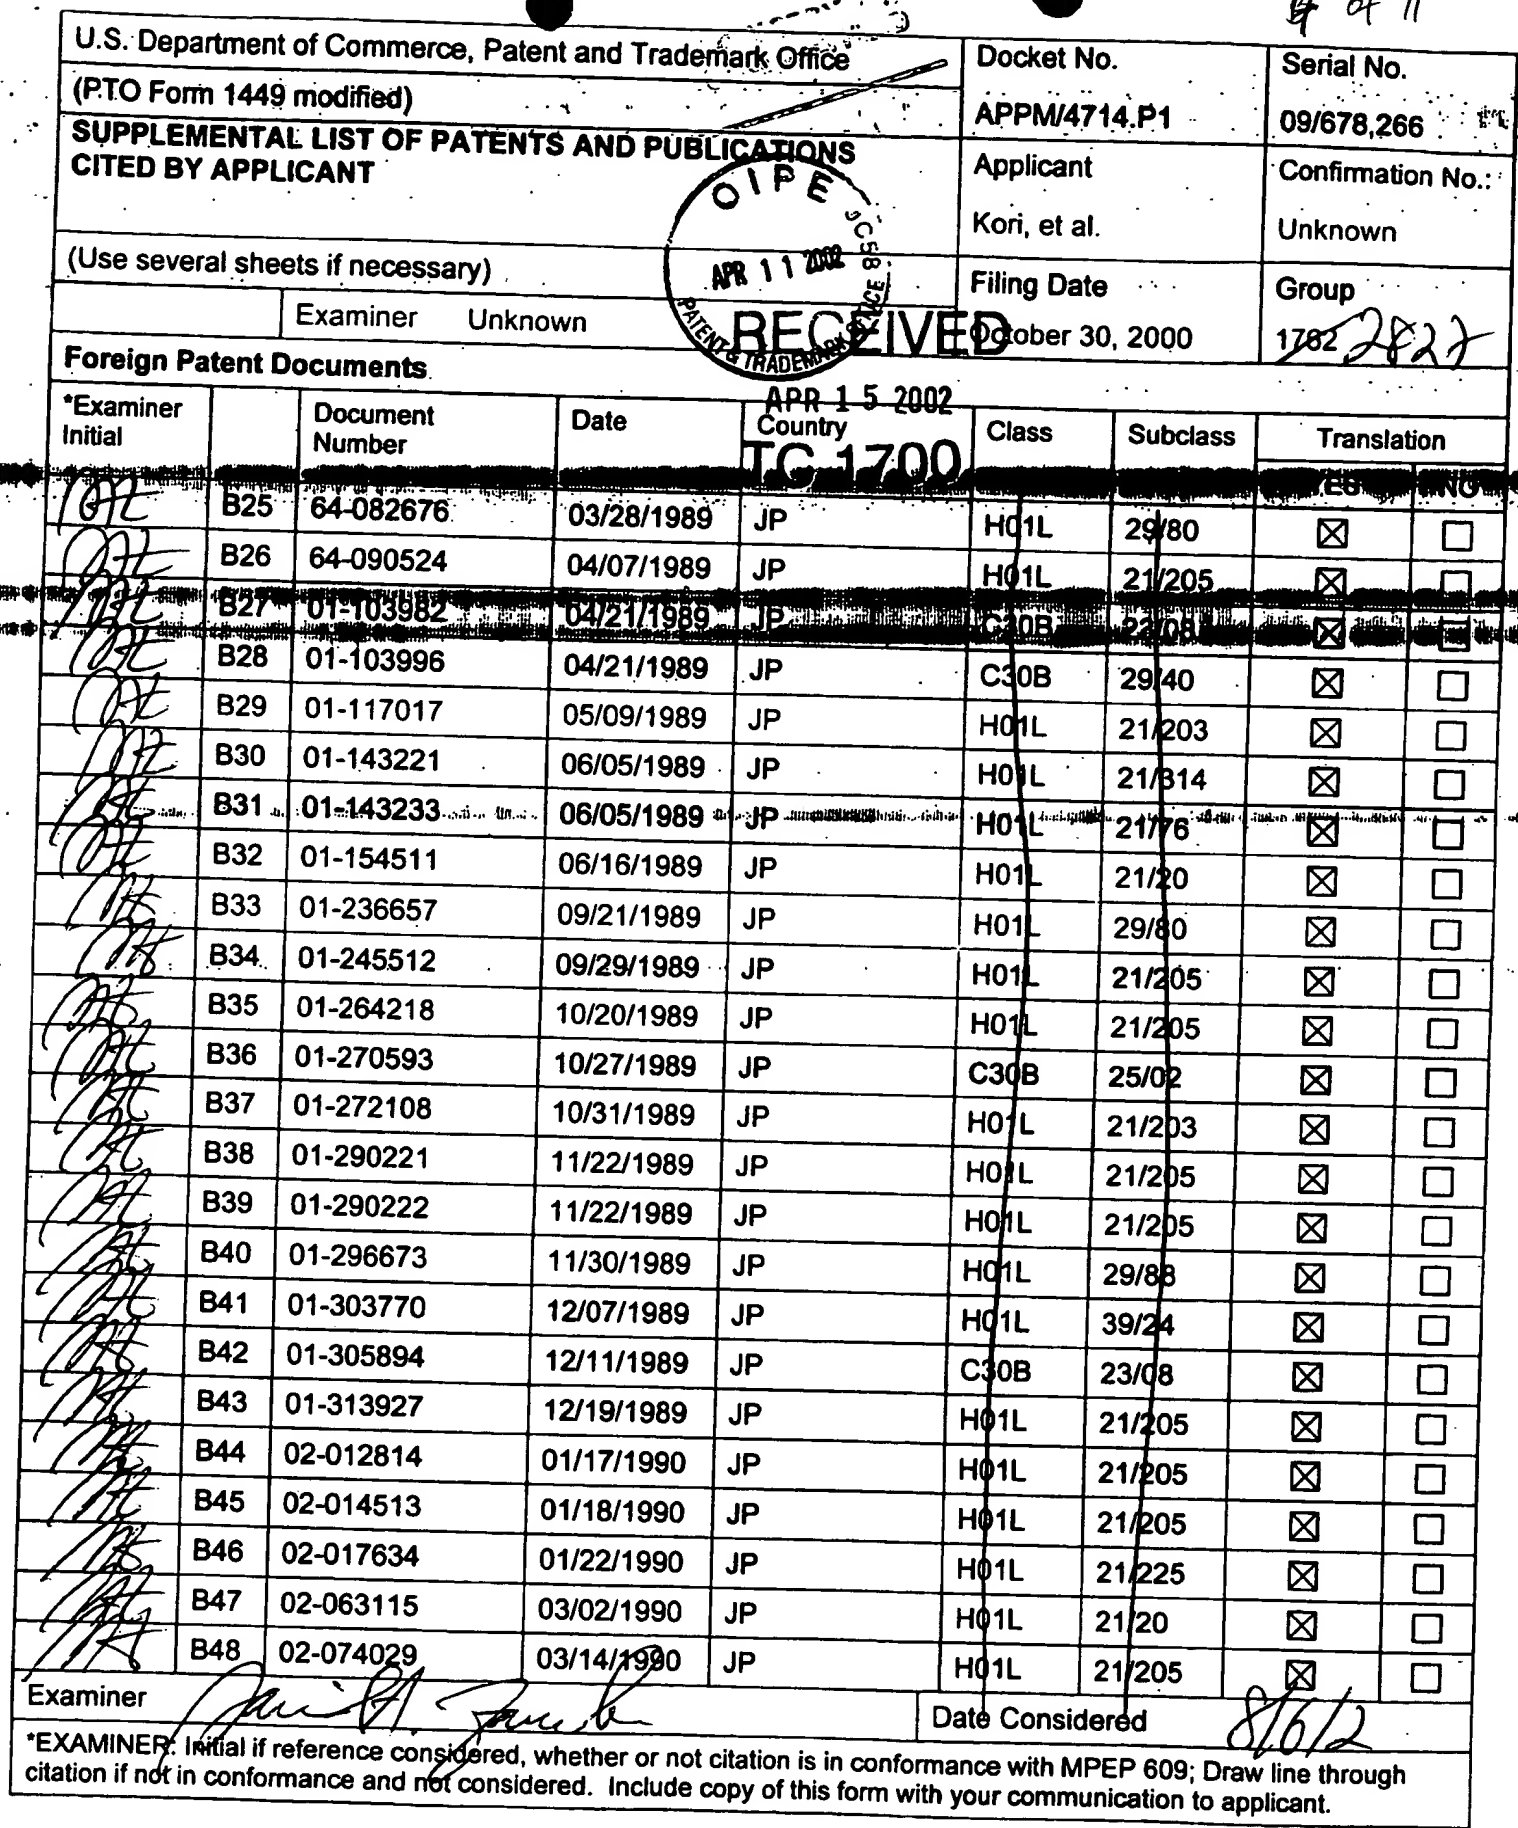 of 11
U.S. Department of Commerce, Patent and Trademark Office
(PTO Form 1449 modified)
SUPPLEMENTAL LIST OF PATENTS AND PUBLICATIONS
CITED BY APPLICANT
(Use several sheets if necessary)
Examiner Unknown
Docket No.
APPM/4714.P1
Serial No.
09/678,266
Applicant
Kori, et al.
Confirmation No.:
Unknown
Filing Date
October 30, 2000
Group
1762 2822
OIPE
APR 11 2002
PATENT & TRADEMARK OFFICE
RECEIVED
APR 15 2002
TC 1700
Foreign Patent Documents
*Examiner Initial Document Number Date Country Class Subclass Translation
YES NO
B25 64-082676 03/28/1989 JP H01L 29/80 ☒ ☐
B26 64-090524 04/07/1989 JP H01L 21/205 ☒ ☐
B27 01-103982 04/21/1989 JP C30B ☒ ☐
B28 01-103996 04/21/1989 JP C30B 29/40 ☒ ☐
B29 01-117017 05/09/1989 JP H01L 21/203 ☒ ☐
B30 01-143221 06/05/1989 JP H01L 21/314 ☒ ☐
B31 01-143233 06/05/1989 JP H01L 21/76 ☒ ☐
B32 01-154511 06/16/1989 JP H01L 21/20 ☒ ☐
B33 01-236657 09/21/1989 JP H01L 29/80 ☒ ☐
B34 01-245512 09/29/1989 JP H01L 21/205 ☒ ☐
B35 01-264218 10/20/1989 JP H01L 21/205 ☒ ☐
B36 01-270593 10/27/1989 JP C30B 25/02 ☒ ☐
B37 01-272108 10/31/1989 JP H01L 21/203 ☒ ☐
B38 01-290221 11/22/1989 JP H01L 21/205 ☒ ☐
B39 01-290222 11/22/1989 JP H01L 21/205 ☒ ☐
B40 01-296673 11/30/1989 JP H01L 29/88 ☒ ☐
B41 01-303770 12/07/1989 JP H01L 39/24 ☒ ☐
B42 01-305894 12/11/1989 JP C30B 23/08 ☒ ☐
B43 01-313927 12/19/1989 JP H01L 21/205 ☒ ☐
B44 02-012814 01/17/1990 JP H01L 21/205 ☒ ☐
B45 02-014513 01/18/1990 JP H01L 21/205 ☒ ☐
B46 02-017634 01/22/1990 JP H01L 21/225 ☒ ☐
B47 02-063115 03/02/1990 JP H01L 21/20 ☒ ☐
B48 02-074029 03/14/1990 JP H01L 21/205 ☒ ☐
Examiner
Date Considered 8/6/2
*EXAMINER: Initial if reference considered, whether or not citation is in conformance with MPEP 609; Draw line through
citation if not in conformance and not considered. Include copy of this form with your communication to applicant.